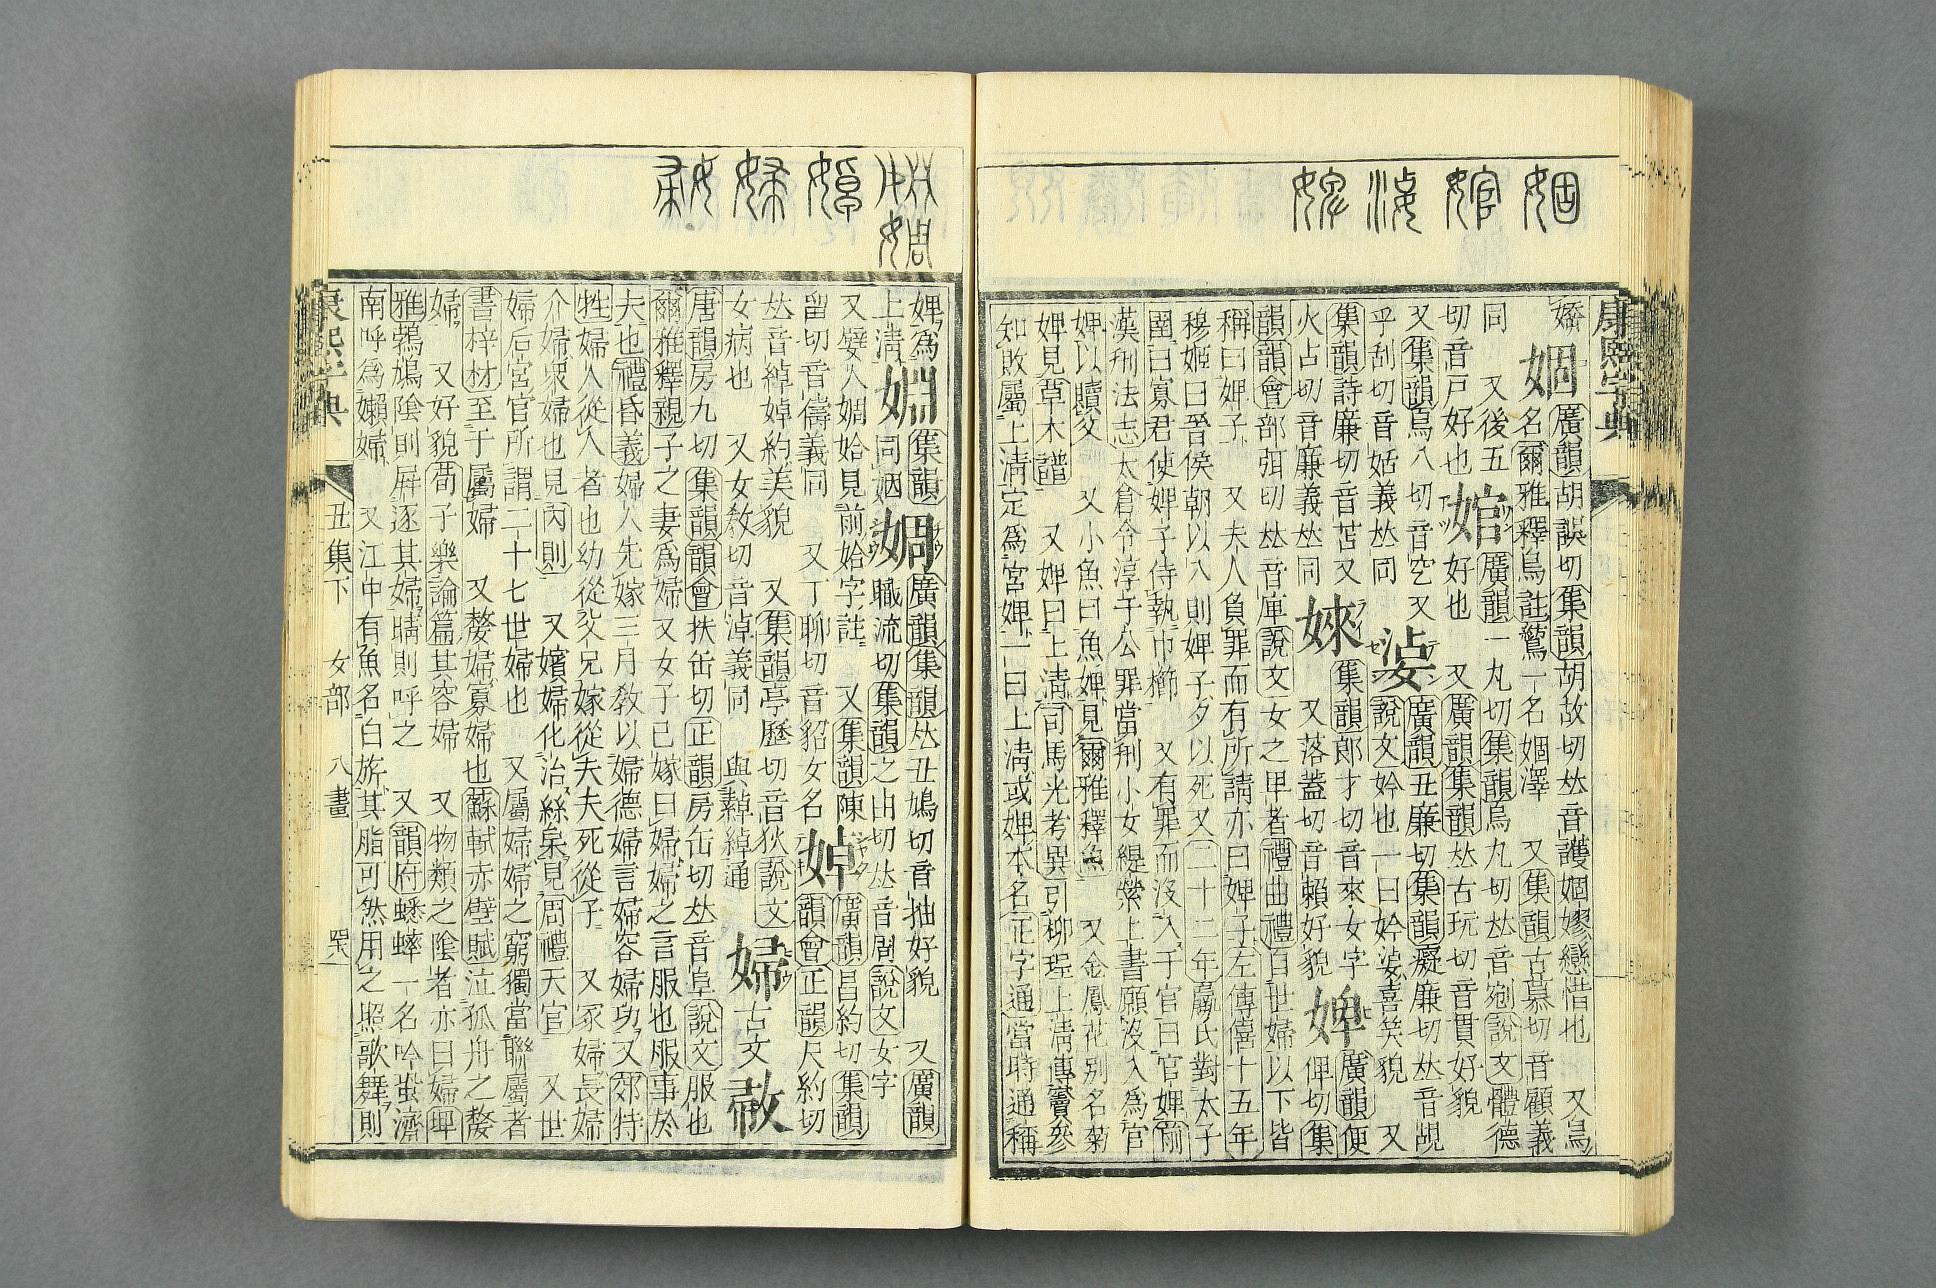 康熙字典
嬌 婟 廣韻胡誤切集韻胡故切𠀤音護婟嫪戀惜也 又鳥
名爾雅釋鳥註鶭一名婟澤 又集韻古慕切音顧義
同 又後五
切音戸好也 婠 廣韻一丸切集韻烏九切𠀤音剜說文體德
好也 又廣韻集韻𠀤古玩切音貫好貌
又集韻烏八切音空 又
乎刮切音姡義𠀤同 婆 廣韻丑廉切集韻癡廉切𠀤音覘
說文妗也一曰妗婆喜笑貌 又
集韻詩廉切音苫又
火占切音廉義𠀤同 婡 集韻郎才切音來女字
又落蓋切音賴好貌 婢 廣韻便
俾切集
韻韻會部弭切𠀤音庳說文女之甲者禮曲禮自世婦以下皆
稱曰婢子 又夫人負罪而有所請亦曰婢子左傳僖十五年
穆姬曰晉侯朝以入則婢子夕以死又二十二年嬴氏對太子
圉曰寡君使婢子侍執巾櫛 又有罪而沒入于官曰官婢前
漢刑法志太倉令淳于公罪當刑小女緹縈上書願沒入為官
婢以贖父 又小魚曰魚婢見爾雅釋魚 又金鳳花別名菊
婢見草木譜 又婢曰上淸司馬光考異引柳珵上淸傳竇參
知敗屬上淸定爲宮婢一曰上淸或婢本名正字通當時通稱
婢爲
上淸 婣 集韻
同姻 婤 廣韻集韻𠀤丑鳩切音抽好貌 又廣韻
職流切集韻之由切𠀤音周說文女字
又嬖人婤姶見前姶字註 又集韻陳
留切音儔義同 又丁聊切音貂女名 婥 廣韻昌約切集韻
韻會正韻尺約切
𠀤音綽婥約美貌 又集韻亭歷切音狄說文
女病也 又女敎切音淖義同 與𩋾綽通 婦 古文 𡜮
唐韻房九切集韻韻會扶缶切正韻房缶切𠀤音阜說文服也
爾雅釋親子之妻爲婦 又女子已嫁曰婦婦之言服也服事於
夫也禮昏義婦人先嫁三月敎以婦德婦言婦容婦功 又郊特
牲婦人從人者也幼從父兄嫁從夫夫死從子 又冢婦長婦
介婦衆婦也見內則 又嬪婦化治絲枲見周禮天官 又世
婦后宮官所謂二十七世婦也 又屬婦婦之窮獨當聯屬者
書梓材至于屬婦 又嫠婦寡婦也蘇軾赤壁賦泣孤舟之嫠
婦 又好貌荀子樂論篇其容婦 又物類之陰者亦曰婦埤
雅鵓鳩陰則屛逐其婦晴則呼之 又韻府蟋蟀一名吟蛩濟
南呼爲嬾婦 又江中有魚名白旂其脂可然用之照歌舞則
康熙字典 丑集下 女部 八畫